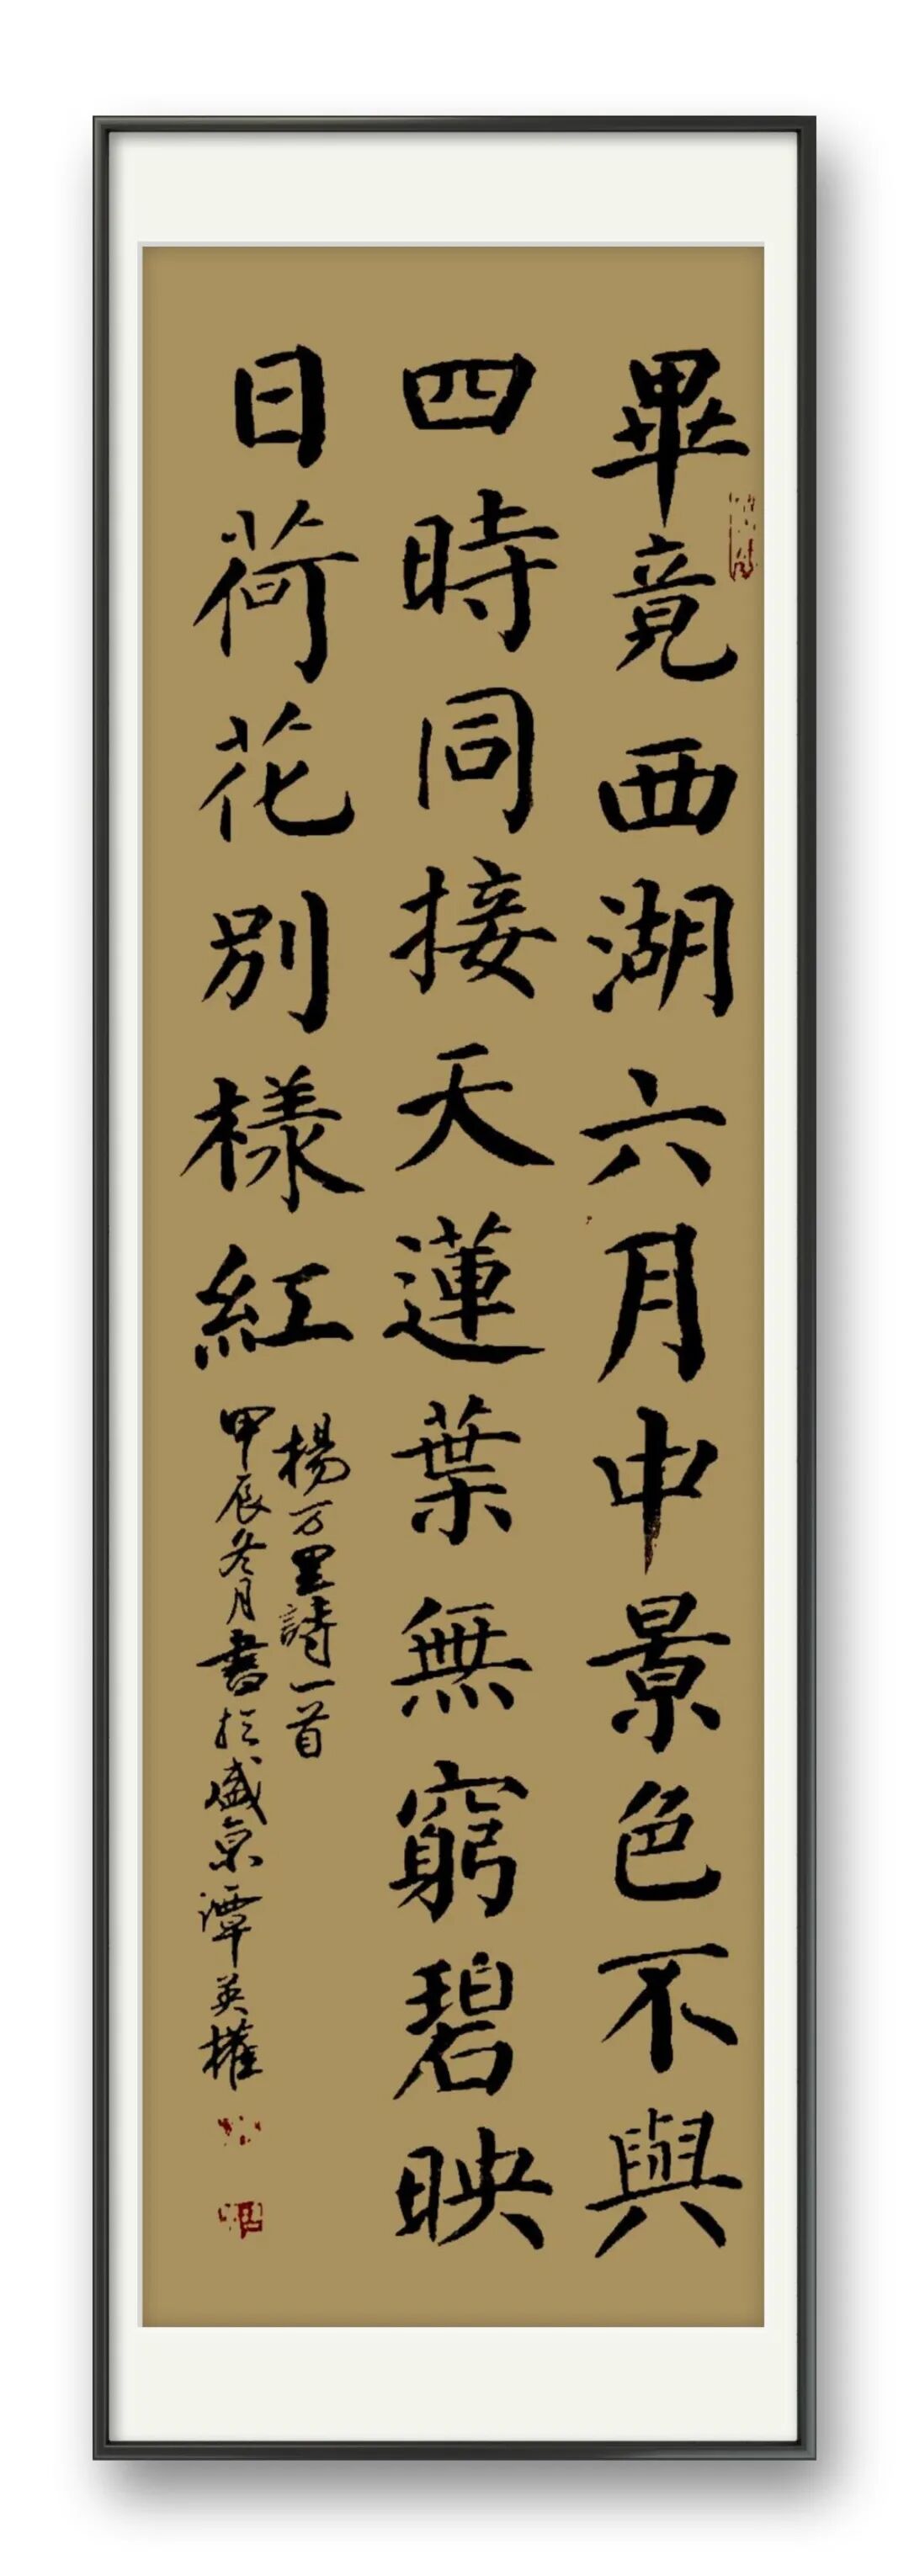 畢竟西湖六月中景色不與
四時同接天蓮葉無窮碧映
日荷花別樣紅
楊万里詩一首
甲辰冬月書於盛京譚英權